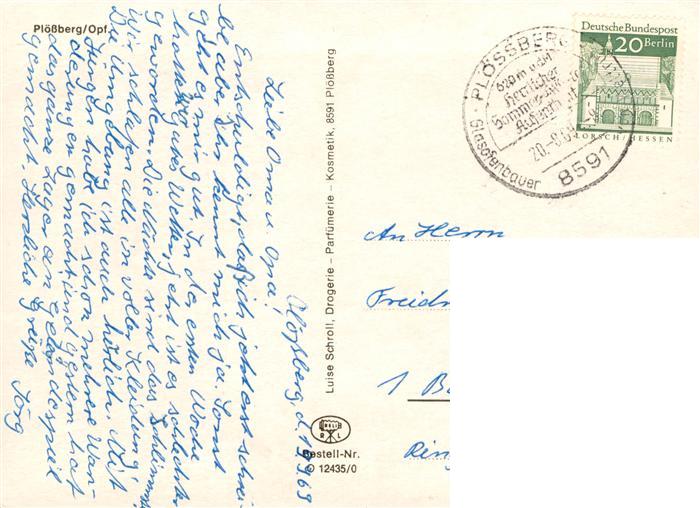 Plößberg/Opf.
Plößberg, d. 19.8.69
Liebe Oma u. Opa,
Entschuldigt, daß ich jetzt erst schrei-
be, aber Ihr kennt mich ja. Sonst
geht es mir gut. In der ersten Woche
hatten gutes Wetter, jetzt ist es schlechter
geworden. Die Nächte sind das Schlimmste,
Wir schlafen alle in voller Kleidung.
Die Umgebung ist auch herrlich. Mit
Jürgen habe ich schon mehrere Wan-
derungen gemacht und gestern hat
das ganze Lager ein Geländespiel
gemacht. Herzliche Grüße Jörg
Luise Schroll, Drogerie - Parfümerie - Kosmetik, 8591 Plößberg
BELI
R L
Bestell-Nr.
© 12435/0
Deutsche Bundespost
20 Berlin
LORSCH/HESSEN
PLÖSSBERG
620 m ü.d.M.
Herrlicher
Sommer
Glasofenbauer
20.-8.
8591
An Herrn
Freid
1 Be
Rin